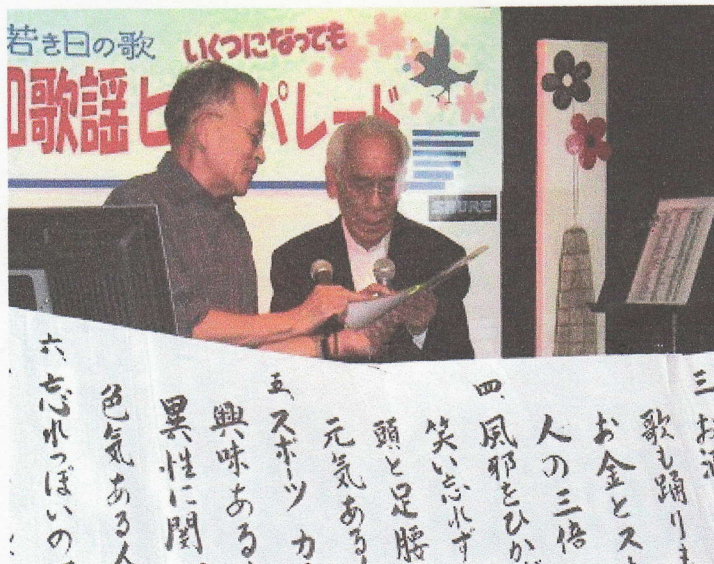 若き日の歌
いくつになっても
和歌謡ヒ パレード
SHURE
三、お酒
歌も踊りま
お金とス
人の三倍
四、風邪をひかず
笑い忘れず
頭と足腰
元気ある
五、スポーツ カ
興味ある
異性に関
色気ある人
六、忘れっぽいの